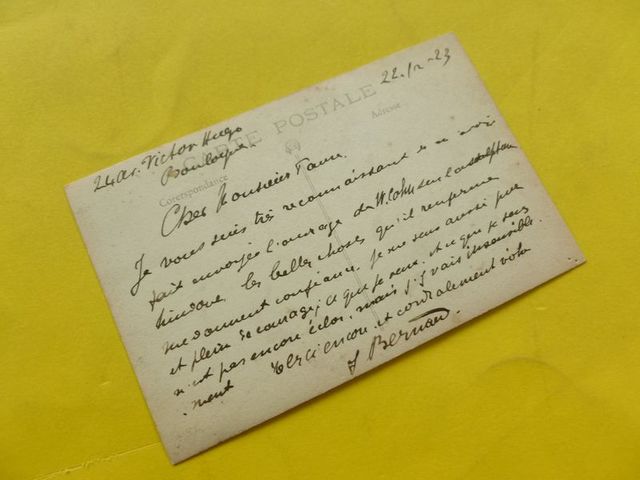 22-12-23
24 Av. Victor Hugo
Boulogne.
CARTE POSTALE
Correspondance
Adresse
Cher Monsieur Faure.
Je vous suis très reconnaissant de m'avoir
fait envoyer l'ouvrage de W. Cohn sur la sculpture
hindoue les belles choses qu'il renferme
me donnent confiance, je me sens aussi pur
et plein de courage, ce que je veux, et ce que je sens
n'est pas encore éclos. mais j'y vais insensible.
.ment Merci encore et cordialement vôtre
J Bernard.